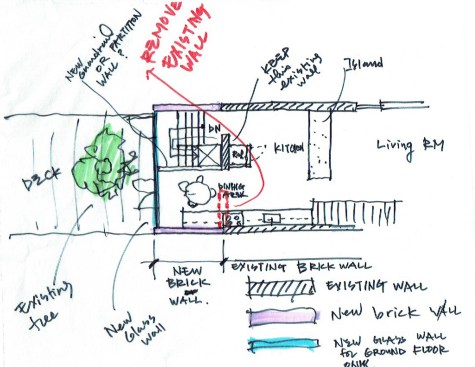 REMOVE
EXISTING
WALL
NEW
OR PARTITION
WALL?
KEEP
this
existing
wall
Island
DN
KITCHEN
Living RM
DECK
DINING
Existing
tree
New Glass
wall
NEW
BRICK
WALL.
EXISTING BRICK WALL
EXISTING WALL
New brick WALL
NEW GLASS WALL
FOR GROUND FLOOR
ONLY